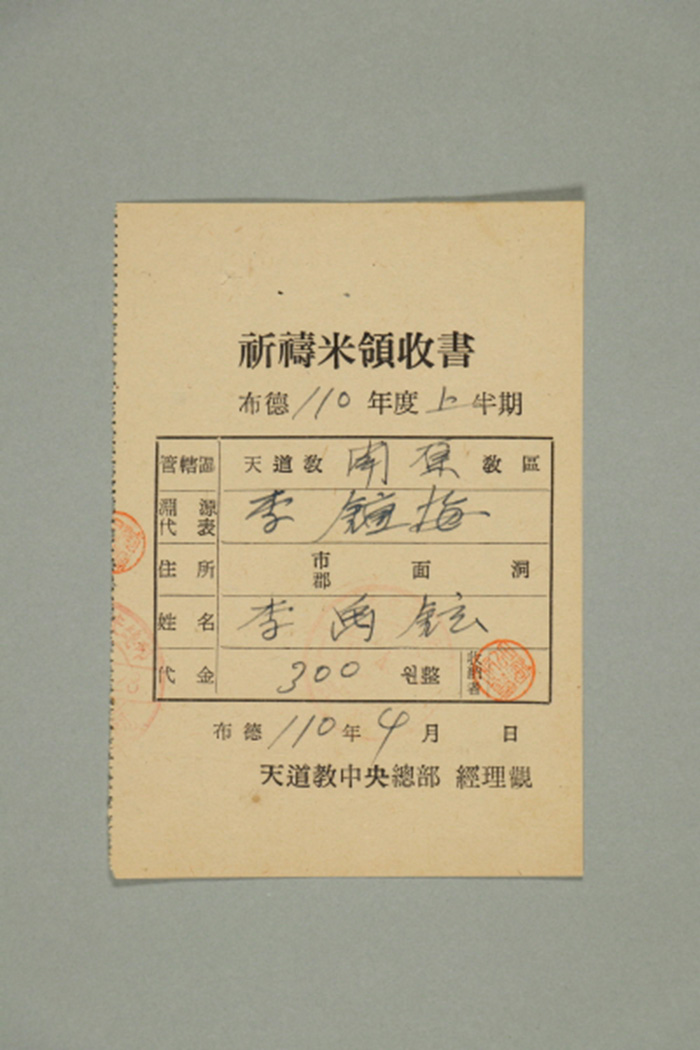 祈禱米領收書
布德 110 年度 上 半期
管轄區 天道教 開 教區
淵源代表 李鍾梅
住所 市郡 面 洞
姓名 李 鉉
代金 300 원整 收納者
布德 110 年 4 月 日
天道教中央總部 經理觀